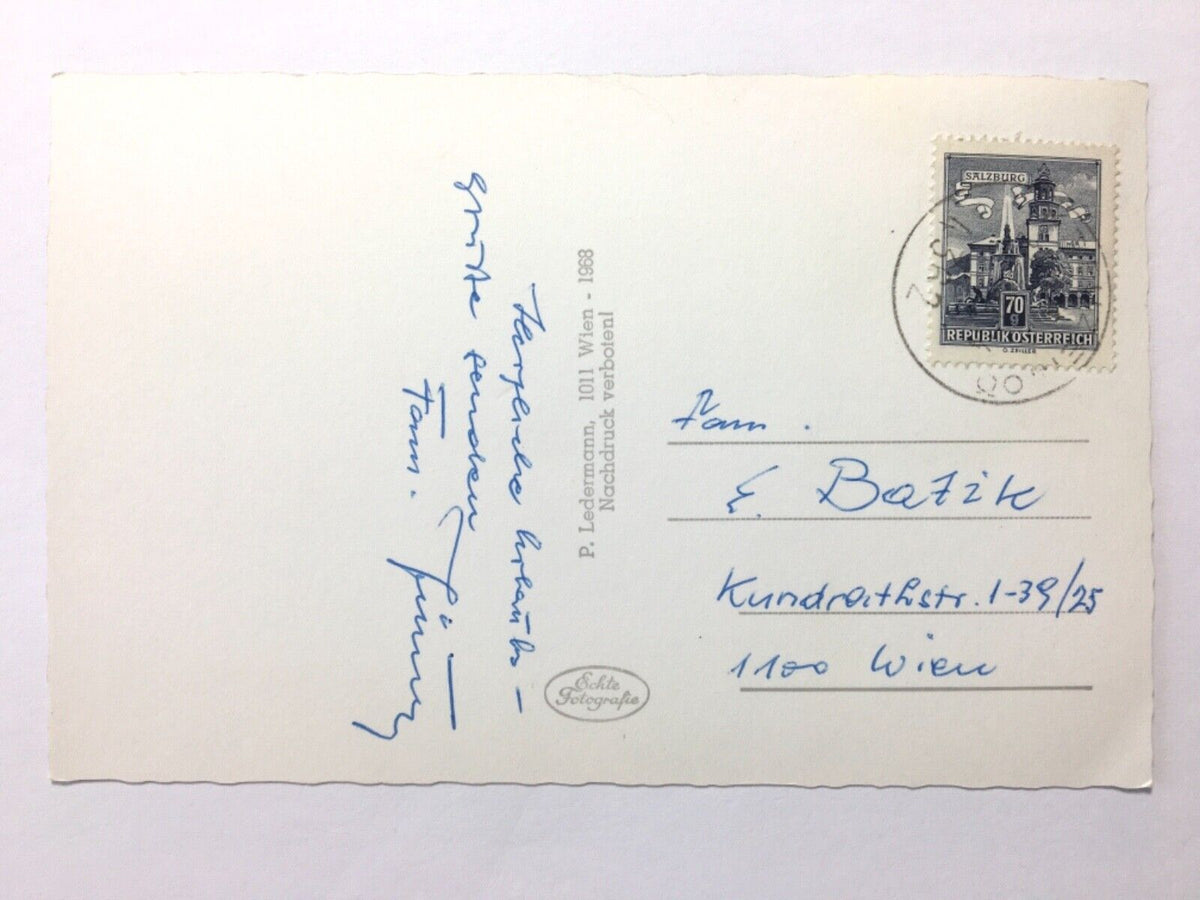 Herzliche Urlaubs-
grüße senden
Fam.
P. Ledermann, 1011 Wien - 1968
Nachdruck verboten!
Echte
Fotografie
SALZBURG
70
g
REPUBLIK ÖSTERREICH
Fam.
E. Batik
Kundrathstr. 1-39/25
1100 Wien